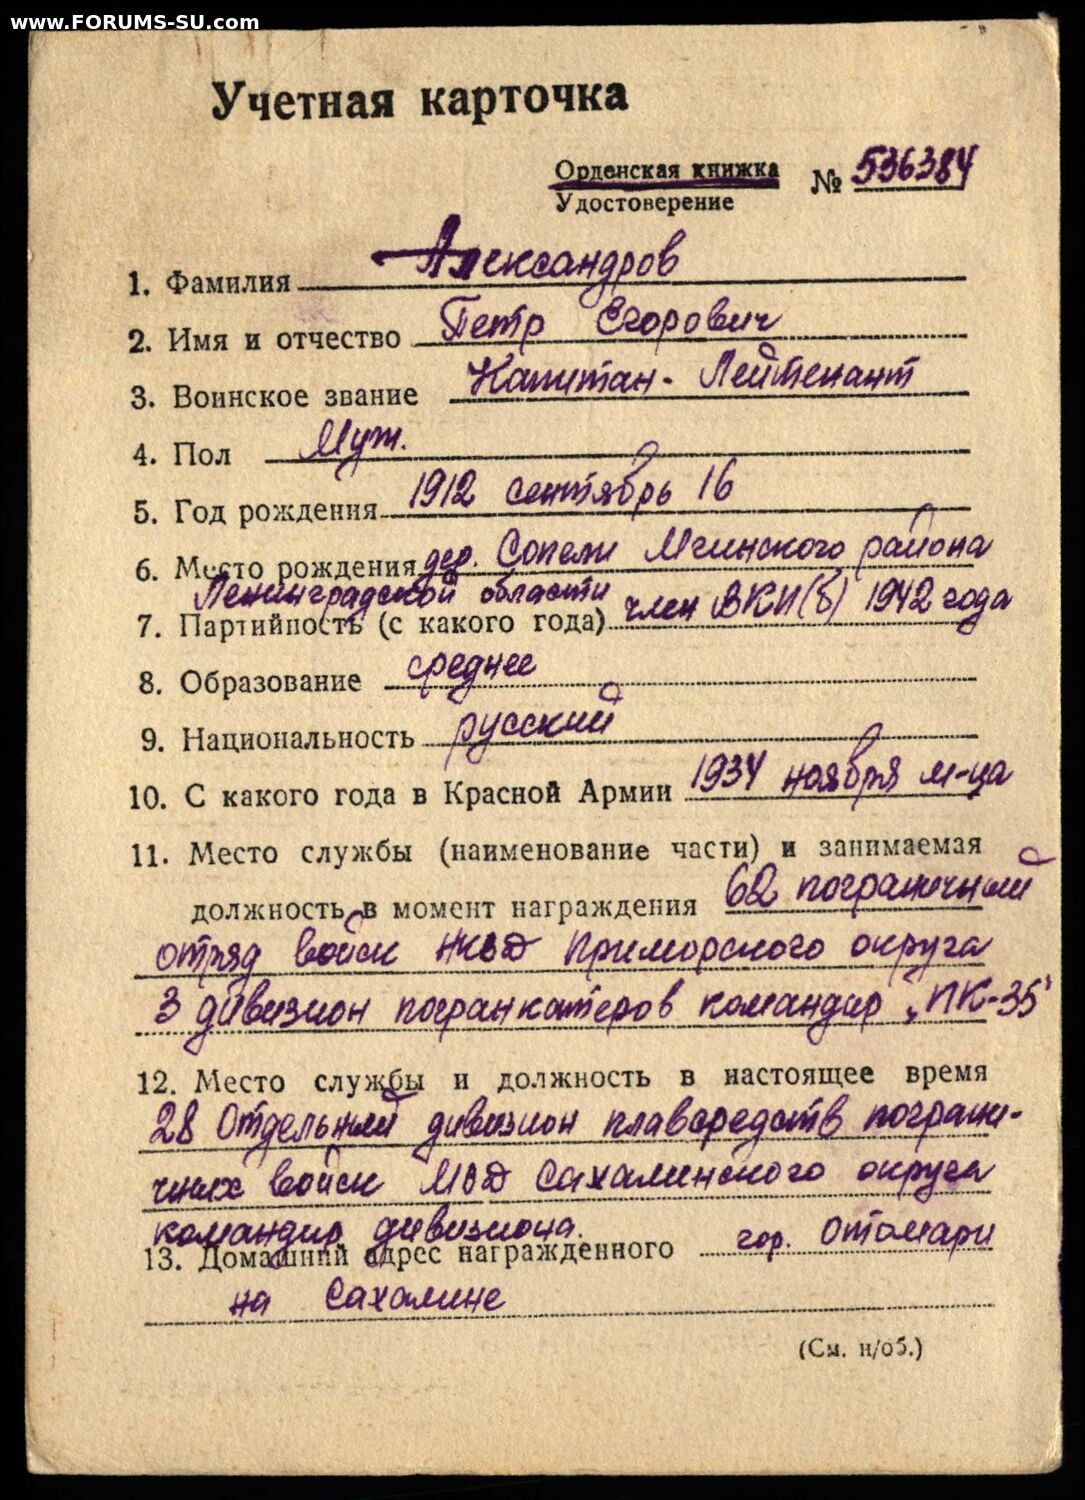 www.FORUMS-SU.com
Учетная карточка
Орденская книжка № 536384
Удостоверение
1. Фамилия Александров
2. Имя и отчество Петр Егорович
3. Воинское звание Капитан-Лейтенант
4. Пол Муж.
5. Год рождения 1912 сентябрь 16
6. Место рождения дер. Сопели Мгинского района
Ленинградской области
7. Партийность (с какого года) член ВКП(б) 1942 года
8. Образование среднее
9. Национальность русский
10. С какого года в Красной Армии 1934 ноября м-ца
11. Место службы (наименование части) и занимаемая
должность в момент награждения 62 пограничный
отряд войск НКВД Приморского округа
3 дивизион погранкатеров командир „ПК-35"
12. Место службы и должность в настоящее время
28 Отдельный дивизион плавсредств пограни-
чных войск МВД Сахалинского округа
командир дивизиона.
13. Домашний адрес награжденного гор. Отомари
на Сахалине
(См. н/об.)